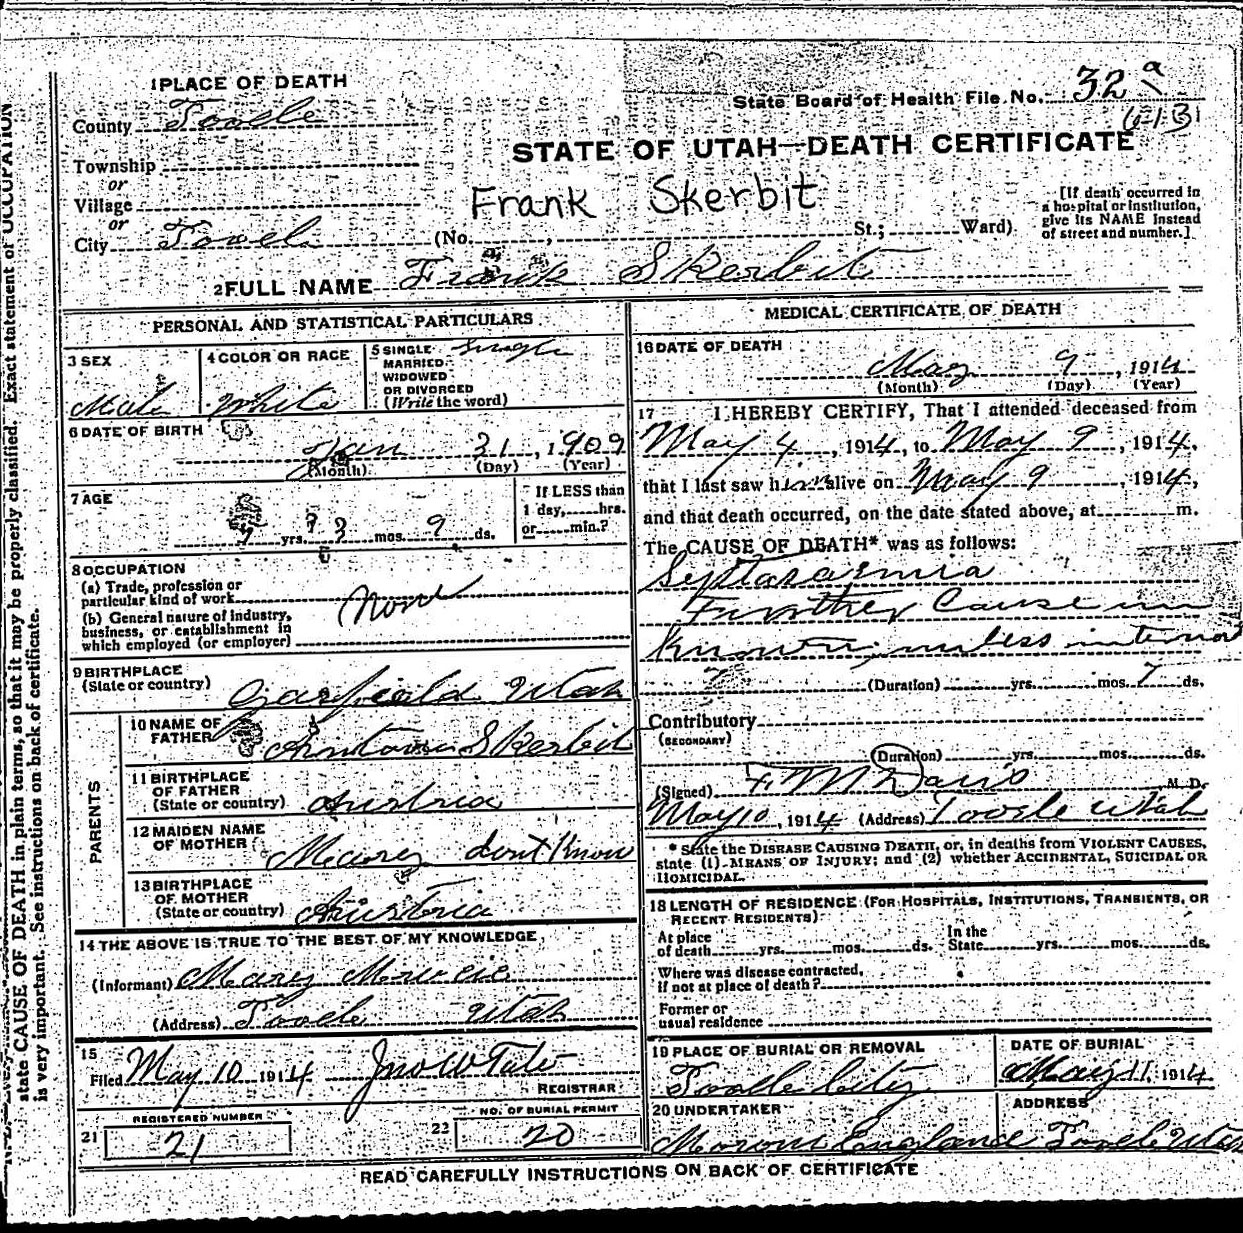 1 PLACE OF DEATH
State Board of Health File No. 32 a
613
County Tooele
STATE OF UTAH—DEATH CERTIFICATE
Township
or
Village
or
Frank Skerbit
[If death occurred in
a hospital or institution,
give its NAME instead
of street and number.]
City Tooele (No. , St.; Ward)
2 FULL NAME Frank Skerbit
PERSONAL AND STATISTICAL PARTICULARS
3 SEX
Male
4 COLOR OR RACE
White
5 SINGLE
MARRIED
WIDOWED
OR DIVORCED
(Write the word)
Single
6 DATE OF BIRTH
Jan 31, 1909
(Month) (Day) (Year)
7 AGE
yrs. 3 mos. 9 ds.
If LESS than
1 day, hrs.
or min.?
8 OCCUPATION
(a) Trade, profession or
particular kind of work
(b) General nature of industry,
business, or establishment in
which employed (or employer)
None
9 BIRTHPLACE
(State or country) Garfield Utah
PARENTS
10 NAME OF
FATHER Antoni Skerbit
11 BIRTHPLACE
OF FATHER
(State or country) Austria
12 MAIDEN NAME
OF MOTHER Marey dont Know
13 BIRTHPLACE
OF MOTHER
(State or country) Austria
14 THE ABOVE IS TRUE TO THE BEST OF MY KNOWLEDGE
(Informant) Marey
(Address) Tooele Utah
15
Filed May 10 1914 Jno W Tate
REGISTRAR
REGISTERED NUMBER
21 21
NO. OF BURIAL PERMIT
22 20
MEDICAL CERTIFICATE OF DEATH
16 DATE OF DEATH
May 9, 1914
(Month) (Day) (Year)
17 I HEREBY CERTIFY, That I attended deceased from
May 4, 1914, to May 9, 1914,
that I last saw him alive on May 9, 1914,
and that death occurred, on the date stated above, at m.
The CAUSE OF DEATH* was as follows:
Further Cause un
known, unless internal
(Duration) yrs. mos. 7 ds.
Contributory
(SECONDARY)
(Duration) yrs. mos. ds.
(Signed) F M Davis M. D.
May 10, 1914 (Address) Tooele Utah
* State the DISEASE CAUSING DEATH, or, in deaths from VIOLENT CAUSES,
state (1) MEANS OF INJURY; and (2) whether ACCIDENTAL, SUICIDAL OR
HOMICIDAL.
18 LENGTH OF RESIDENCE (FOR HOSPITALS, INSTITUTIONS, TRANSIENTS, OR
RECENT RESIDENTS)
At place
of death yrs. mos. ds.
In the
State yrs. mos. ds.
Where was disease contracted,
if not at place of death?
Former or
usual residence
19 PLACE OF BURIAL OR REMOVAL
Tooele City
DATE OF BURIAL
May 11, 1914
20 UNDERTAKER
Moroni England
ADDRESS
Tooele Utah
READ CAREFULLY INSTRUCTIONS ON BACK OF CERTIFICATE
state CAUSE OF DEATH in plain terms, so that it may be properly classified. Exact statement of OCCUPATION
is very important. See instructions on back of certificate.